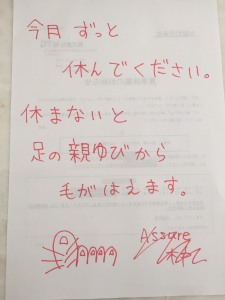 今月 ずっと
休んでください。
休まないと
足の親ゆびから
毛がはえます。
Assure